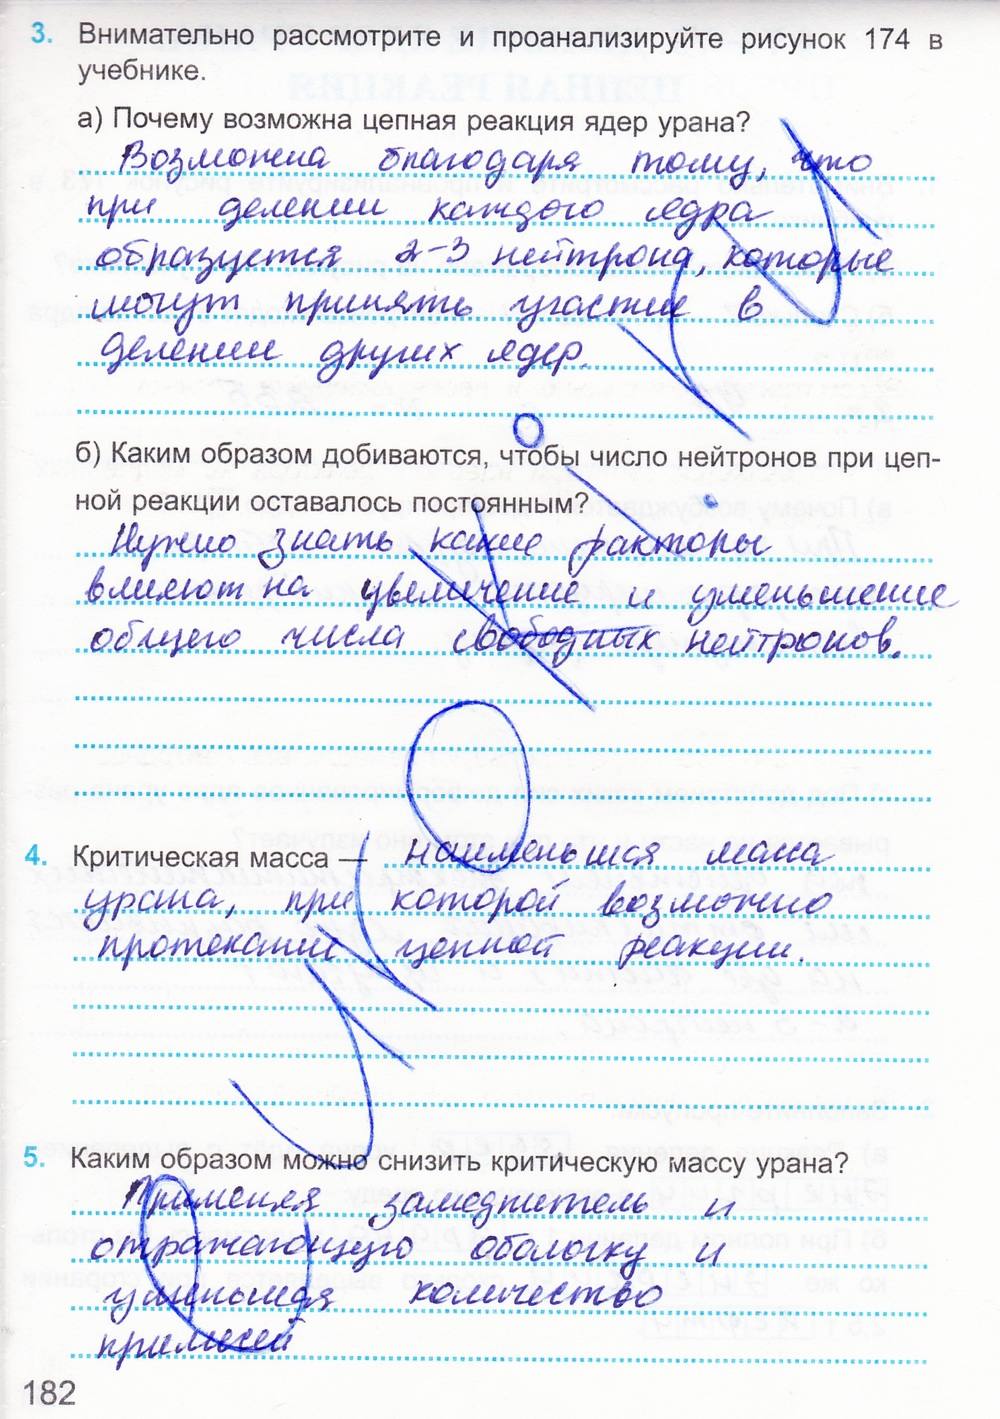 3. Внимательно рассмотрите и проанализируйте рисунок 174 в
учебнике.
а) Почему возможна цепная реакция ядер урана?
Возможна благодаря тому, что
при делении каждого ядра
образуется 2-3 нейтрона, которые
могут принять участие в
делении других ядер.
б) Каким образом добиваются, чтобы число нейтронов при цеп-
ной реакции оставалось постоянным?
Нужно знать какие факторы
влияют на увеличение и уменьшение
общего числа свободных нейтронов.
4. Критическая масса — наименьшая масса
урана, при которой возможно
протекание цепной реакции.
5. Каким образом можно снизить критическую массу урана?
Применяя замедлитель и
отражающую оболочку и
уменьшая количество
примесей
182